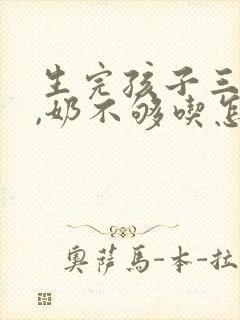 生完孩子三
,奶不够喫怎
奥薩馬-本-拉